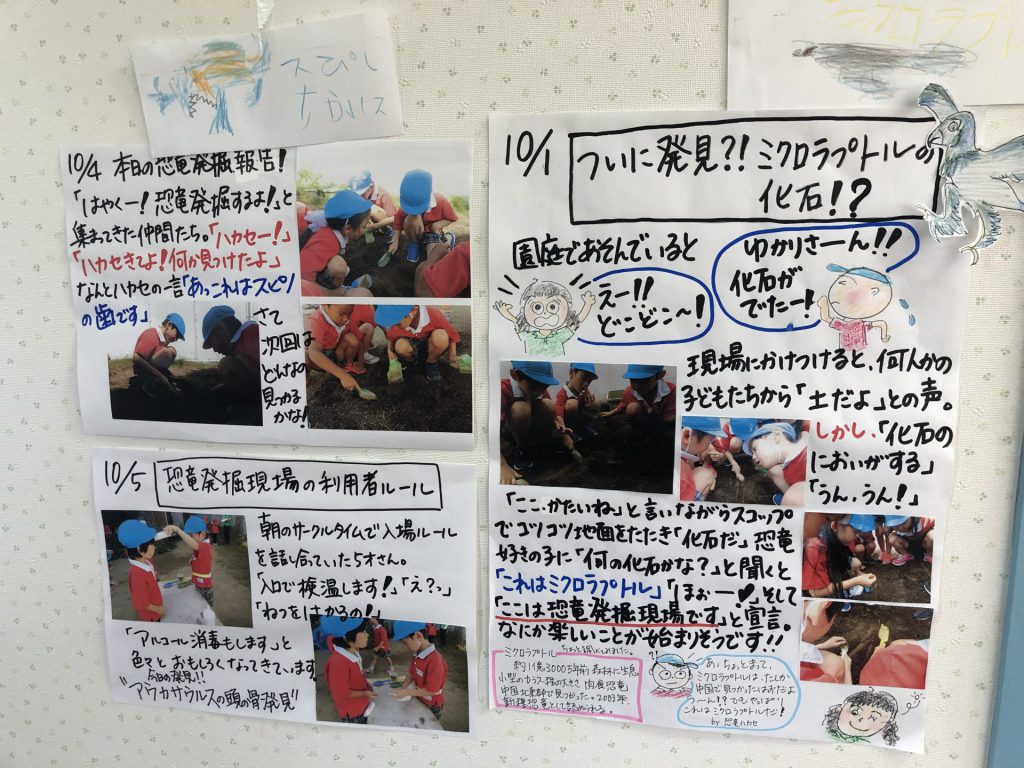 スピノ
サウルス
ミクロラプト
10/4 本日の恐竜発掘報告!
「はやくー!恐竜発掘するよ!」と
集まってきた仲間たち。「ハカセー!」
「ハカセきてよ!何か見つけたよー」
なんとハカセの一言「あっこれはスピノ
の歯です」
さて
次回は
どんなの
見つかる
かな!
10/5 恐竜発掘現場の利用者ルール
朝のサークルタイムで入場ルール
を話し合っていた5才さん。
「入口で検温します!」「え?っ」
「ねつをはかるの!」
「アルコール消毒もします」と
色々とおもしろくなってきています
今日の発見!!
"アワカサウルスの頭の骨発見"
10/1 ついに発見?!ミクロラプトルの
化石!?
園庭であそんでいると
えー!!
どこどこ〜!
ゆかりさーん!!
化石が
でたー!
現場にかけつけると、何人かの
子どもたちから「土だよ」との声。
しかし、「化石の
においがする」
「うん、うん!」
「ここ、かたいね」と言いながらスコップ
でゴツゴツ地面をたたき「化石だ」恐竜
好きの子に「何の化石かな?」と聞くと
「これはミクロラプトル」「ほぉー♥」そして
「ここは恐竜発掘現場です」と宣言。
なにか楽しいことが始まりそうです!!
ミクロラプトル ちょっと調べてみました。
約1億3000万年前 森林に生息
小型のカラス程の大きさ 肉食恐竜
中国北東部で見つかった。2003年、
新種恐竜として認められる。
あ、ちょっとまって、
ミクロラプトルは、たしか
中国で見つかったはずだよ
うーん!?でもやっぱり
これはミクロラプトルだ!
by 恐竜ハカセ